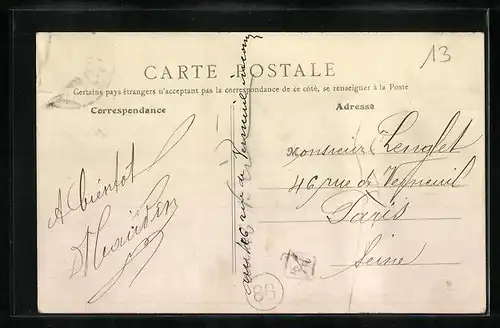 13
CARTE POSTALE
Certains pays étrangers n'acceptant pas la correspondance de ce côté, se renseigner à la Poste
Correspondance
Adresse
A bientôt
Monsieur Lenglet
46 rue de Verneuil
Paris
Seine
rue de Verneuil
88